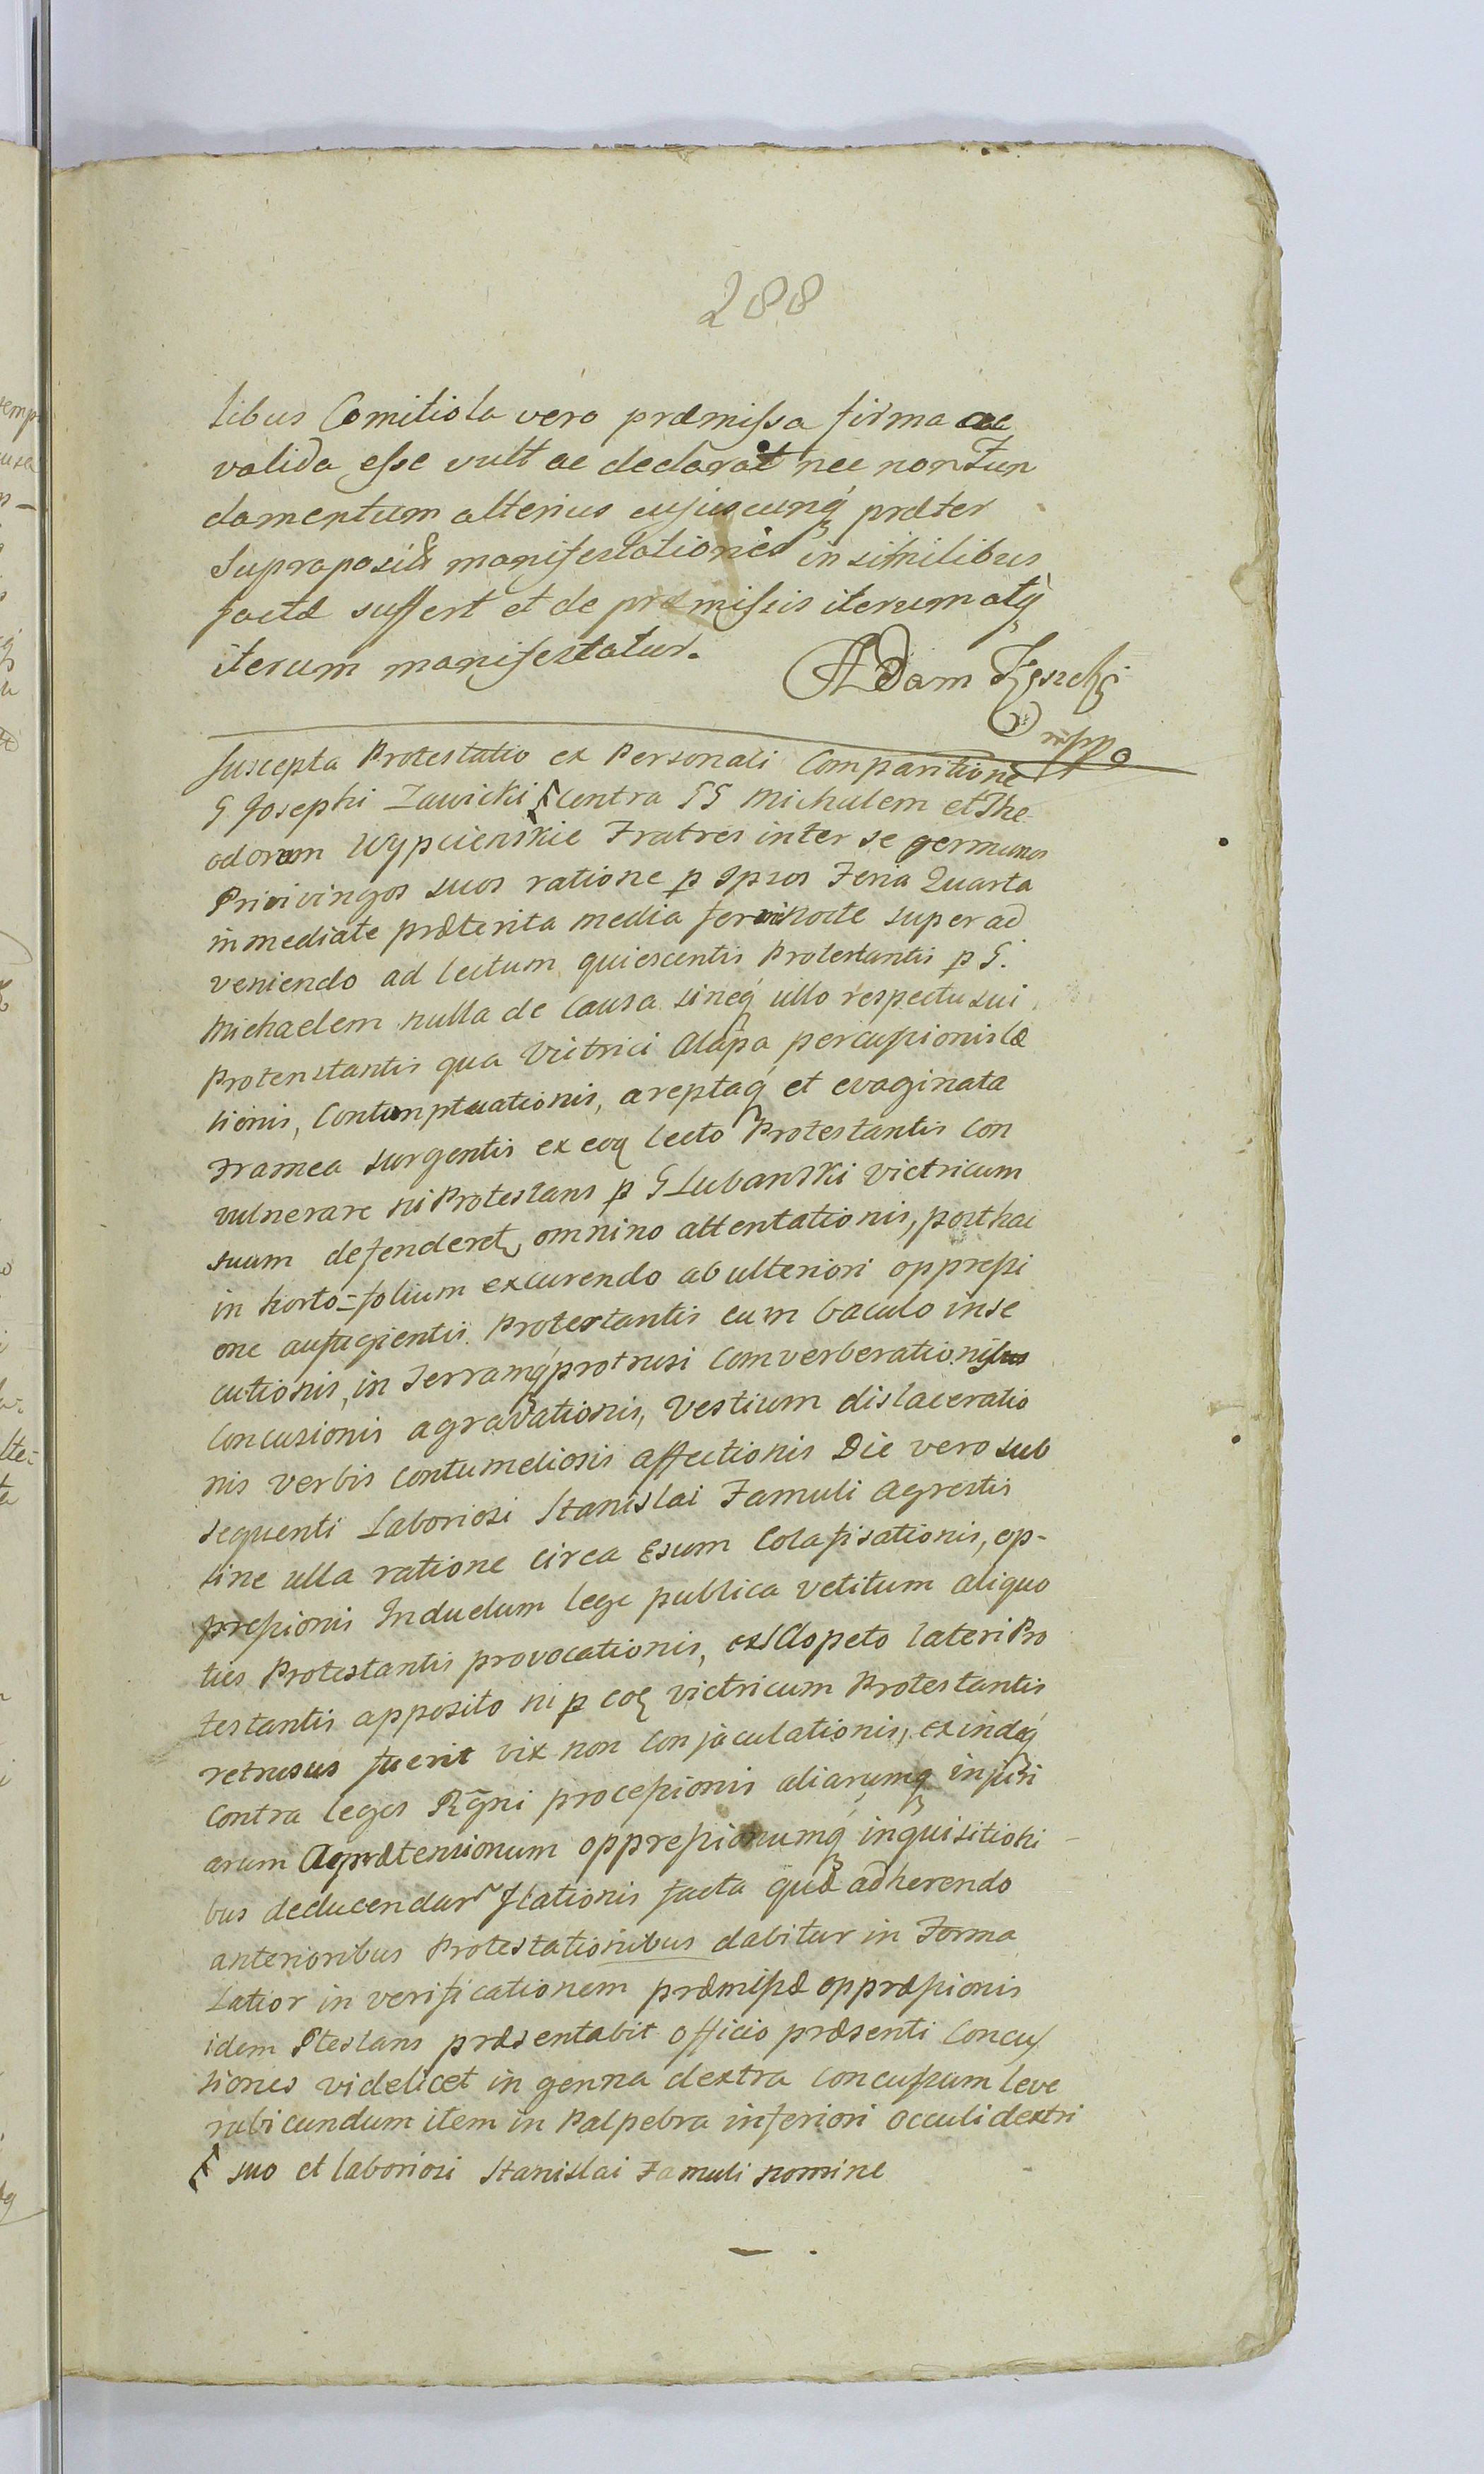 288
libus Comitiola vero præmissa firma ac
valida esse vult ac declarat nec non Fun
damentum alterius cujuscunq́ præter
Supraposit manifestationis in similibus
factæ suffert et de præmissis iterum atq́
iterum manifestatur.
Adam
mppa
Suscepta Protestatio ex Personali Comparitione
G Josephi Zawicki contra GG Michalem et The
odorum Wypcienskie Fratres inter se germanos
Privivingos suos ratione p Ipsos Feria Quarta
immediate præterita media fere nocte super ad
veniendo ad lectum quiescentis Protestantis p G.
Michaelem nulla de Causa sineq́ ullo respectu sui
Protenstantis qua Vitrici Alapa percussionis læ
sionis, Contumptuationis, areptaq́ et evaginata
Framea surgentis ex eoq lecto Protestantis Con
vulnerare ni Protestans p G Lubanski victricum
suum defenderet, omnino attentationis, post hac
in horto=folium excurendo ab ulteriori oppressi
one aufugientis Protestantis cum baculo inse
cutionis, in Terramq́ protrusi Comverberationis
Concusionis agravationis, Vestium dislaceratio
nis verbis contumeliosis affectionis Die vero sub
sequenti Laboriosi Stanislai Famuli Agrestis
sine ulla ratione circa Esum Colafisationis, op-
pressionis Induelum lege publica vetitum aliquo
ties Protestantis provocationis, exsclopeto lateri Pro
testantis apposito ni p eoq victricum Protestantis
retrusus fuerit vix non Conjaculationis, exindeq́
Contra leges Rg̃ni processionis aliarumq́ injuri
arum Acprætensionum oppressionumq́ inquisitioni
bus deducendar̃ Illationis facta quæ adherendo
anterioribus Protestationibus dabitur in Forma
Latior in verificationem præmissæ oppræssionis
idem Ptestans præsentabit officio præsenti Concus
siones videlicet in genna dextra concussum leve
rubicundum item in Palpebra inferiori Occuli dextri
suo et laboriosi Stanislai Famuli nomine